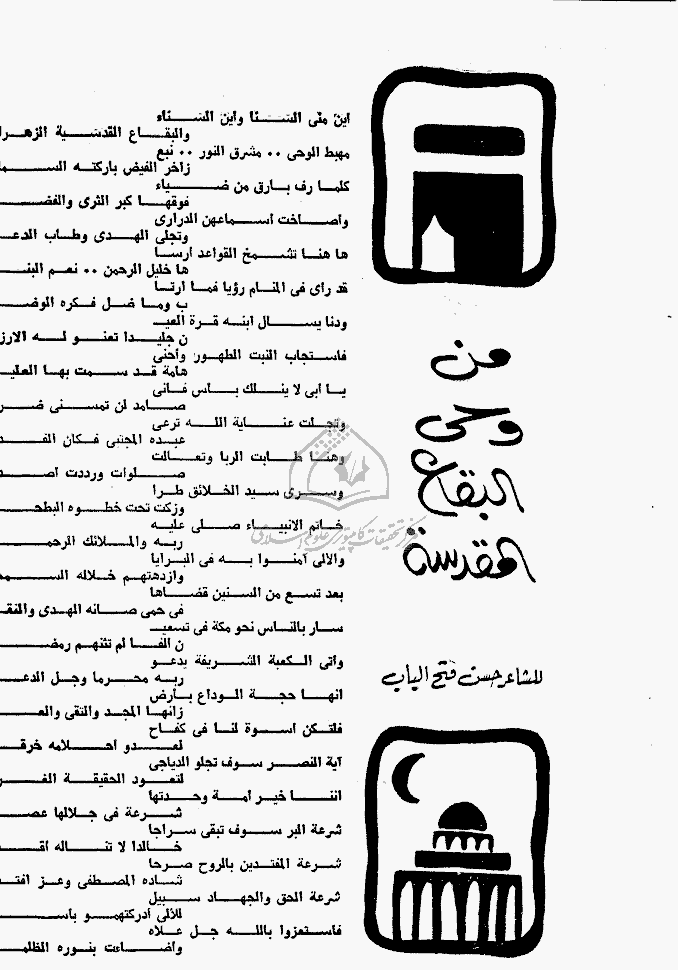 من
وحى
البقاع
المقدسة
للشاعر حسن فتح الباب
اين منى السنا واين السناء
والبقاع القدسية
مهبط الوحى .. مشرق النور .. نبع
زاخر الفيض باركته
كلما رف بارق من ضياء
فوقها كبر الثرى
واصاخت اسماعهن الدرارى
وتجلى الهدى وطاب
ها هنا تشمخ القواعد ارسا
ها خليل الرحمن .. نعم
قد راى فى المنام رؤيا فما ارتا
ب وما ضل فكره
ودنا يسال ابنه قرة العيـ
ن جليدا تعنو له
فاستجاب النبت الطهور وأحنى
هامة قد سمت بها
يا أبى لا ينلك باس فانى
صامد لن تمسنى
وتجلت عناية الله ترعى
عبده المجتبى فكان
وهنا طابت الربا وتعالت
صلوات ورددت
وسرى سيد الخلائق طرا
وزكت تحت خطوه
خاتم الانبياء صلى عليه
ربه والملائك
والالى آمنوا به فى البرايا
وازدهتهم خلاله
بعد تسع من السنين قضاها
فى حمى صانه الهدى
سار بالناس نحو مكة فى تسعيـ
ن الفا لم تثنهم
واتى الكعبة الشريفة يدعو
ربه محرما وجل
انها حجة الوداع بارض
زانها المجد والتقى
فلتكن اسوة لنا فى كفاح
لعدو احلامه
آية النصر سوف تجلو الدياجى
لتعود الحقيقة
اننا خير امة وحدتها
شرعة فى جلالها
شرعة البر سوف تبقى سراجا
خالدا لا تناله
شرعة المفتدين بالروح صرحا
شاده المصطفى وعز
شرعة الحق والجهاد سبيل
للألى أدركتهمو
فاستعزوا بالله جل علاه
واضاءت بنوره
مركز تحقيقات كامپيوترى علوم اسلامى